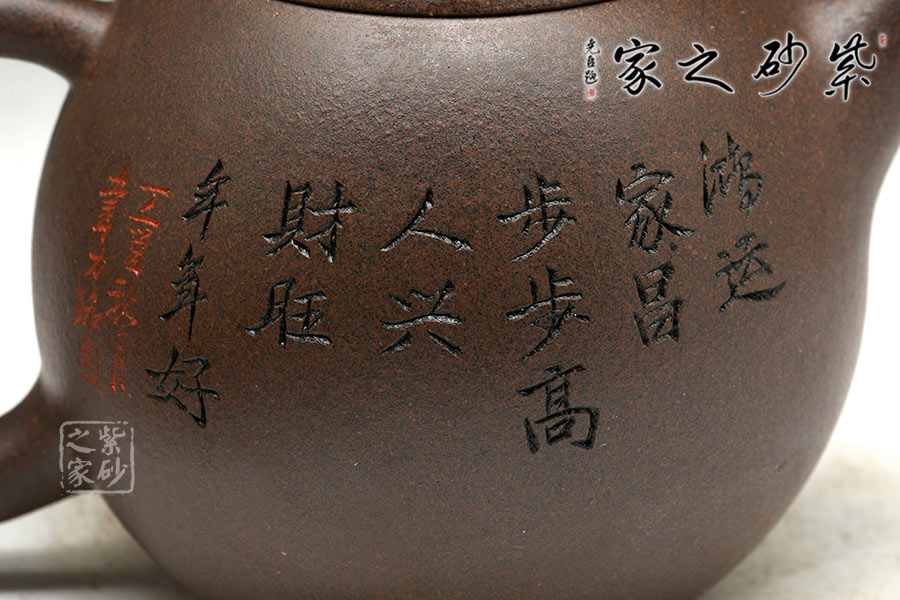 紫砂之家
鸿运
家昌
步步高
人兴
財旺
年年好
紫砂
之家